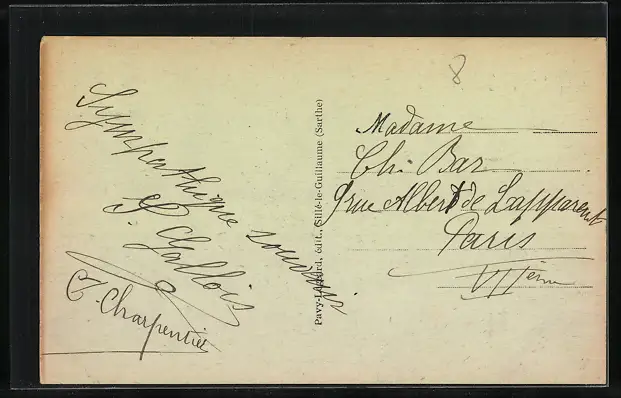 Sympathique souvenir
S. Gallois
C. Charpentier
Pavy-Legeard, édit., Sillé-le-Guillaume (Sarthe)
8
Madame
Ch. Bar
9 rue Albert de Lapparent
Paris
VIIème